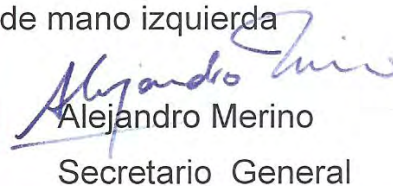 de mano izquierda
Alejandro Merino
Alejandro Merino
Secretario General